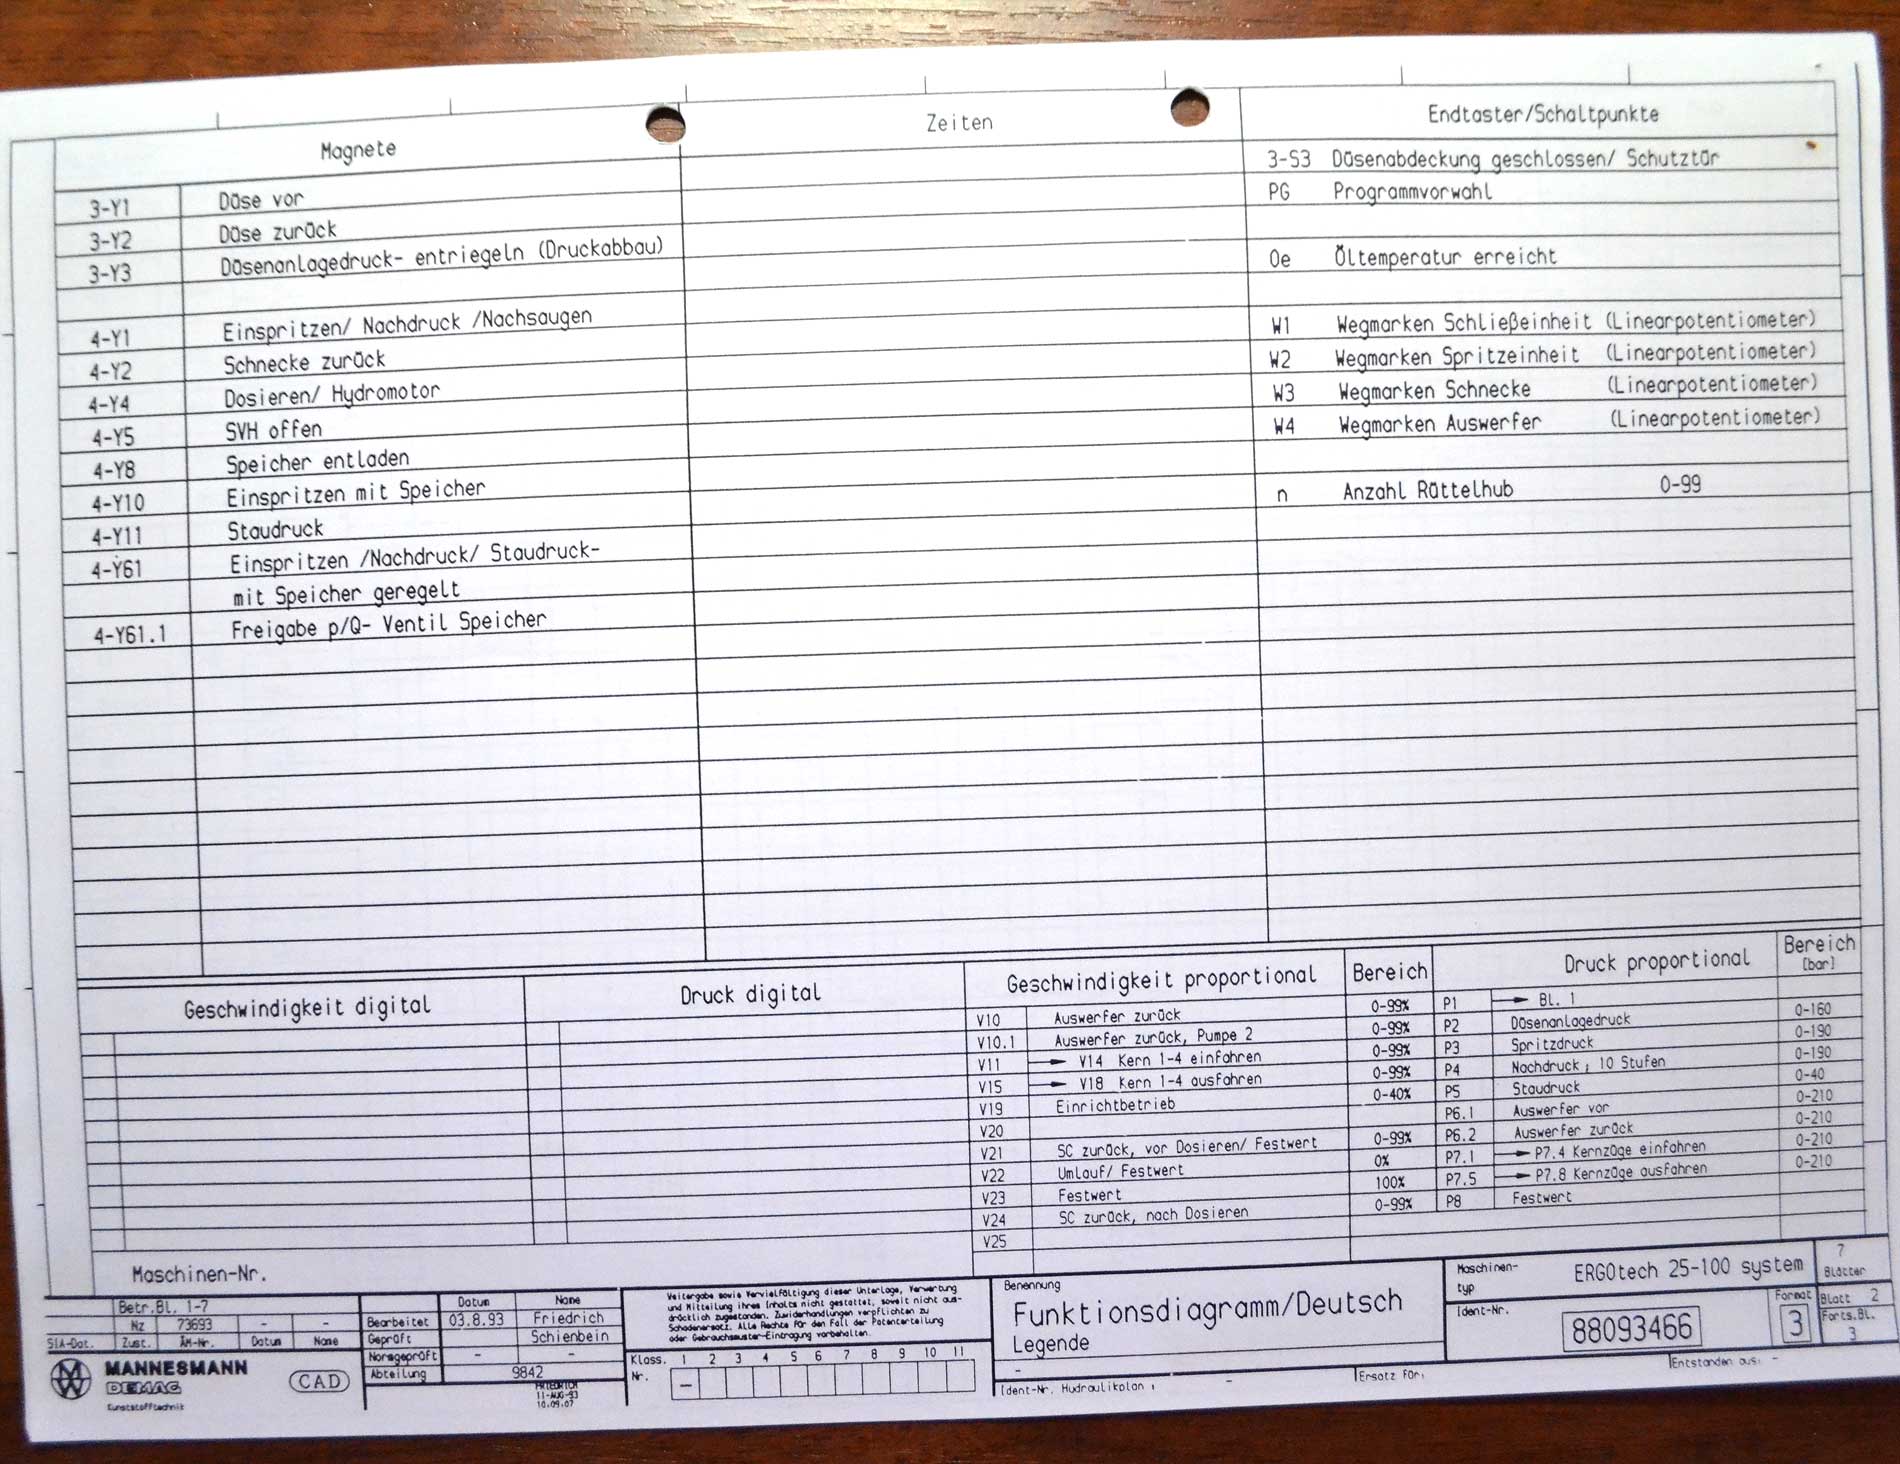 Magnete
Zeiten
Endtaster/Schaltpunkte
3-Y1 Düse vor
3-Y2 Düse zurück
3-Y3 Düsenanlagedruck- entriegeln (Druckabbau)
4-Y1 Einspritzen/ Nachdruck /Nachsaugen
4-Y2 Schnecke zurück
4-Y4 Dosieren/ Hydromotor
4-Y5 SVH offen
4-Y8 Speicher entladen
4-Y10 Einspritzen mit Speicher
4-Y11 Staudruck
4-Y61 Einspritzen /Nachdruck/ Staudruck-
mit Speicher geregelt
4-Y61.1 Freigabe p/Q- Ventil Speicher
3-S3 Düsenabdeckung geschlossen/ Schutztür
PG Programmvorwahl
Oe Öltemperatur erreicht
W1 Wegmarken Schließeinheit (Linearpotentiometer)
W2 Wegmarken Spritzeinheit (Linearpotentiometer)
W3 Wegmarken Schnecke (Linearpotentiometer)
W4 Wegmarken Auswerfer (Linearpotentiometer)
n Anzahl Rüttelhub 0-99
Geschwindigkeit digital
Druck digital
Geschwindigkeit proportional Bereich
V10 Auswerfer zurück 0-99%
V10.1 Auswerfer zurück, Pumpe 2 0-99%
V11 → V14 Kern 1-4 einfahren 0-99%
V15 → V18 Kern 1-4 ausfahren 0-99%
V19 Einrichtbetrieb 0-40%
V20
V21 SC zurück, vor Dosieren/ Festwert 0-99%
V22 Umlauf/ Festwert 0%
V23 Festwert 100%
V24 SC zurück, nach Dosieren 0-99%
V25
Druck proportional Bereich
[bar]
P1 → Bl. 1
P2 Düsenanlagedruck 0-160
P3 Spritzdruck 0-190
P4 Nachdruck, 10 Stufen 0-190
P5 Staudruck 0-40
P6.1 Auswerfer vor 0-210
P6.2 Auswerfer zurück 0-210
P7.1 → P7.4 Kernzüge einfahren 0-210
P7.5 → P7.8 Kernzüge ausfahren 0-210
P8 Festwert
Maschinen-Nr.
Betr.Bl. 1-7
Nz 73693 - -
SIA-Dat. Zust. ÄM-Nr. Datum Name
MANNESMANN
DEMAG
Kunststofftechnik
CAD
Datum Name
Bearbeitet 03.8.93 Friedrich
Geprüft Schienbein
Normgeprüft - -
Abteilung 9842
FRIEDRICH
11-AUG-93
10.09.07
Weitergabe sowie Vervielfältigung dieser Unterlage, Verwertung
und Mitteilung ihres Inhalts nicht gestattet, soweit nicht aus-
drücklich zugestanden. Zuwiderhandlungen verpflichten zu
Schadenersatz. Alle Rechte für den Fall der Patenterteilung
oder Gebrauchsmuster-Eintragung vorbehalten.
Klass. 1 2 3 4 5 6 7 8 9 10 11
Nr. -
Benennung
Funktionsdiagramm/Deutsch
Legende
-
Ident-Nr. Hydraulikplan : -
Ersatz für:
Entstanden aus: -
Maschinen-
typ
ERGOtech 25-100 system
Ident-Nr.
88093466
Format
3
7
Blätter
Blatt 2
Forts.Bl.
3